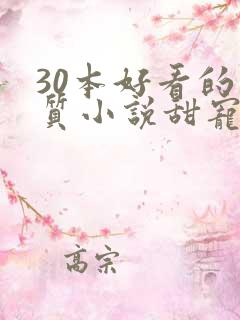 30本好看的
質小說甜寵
高宗